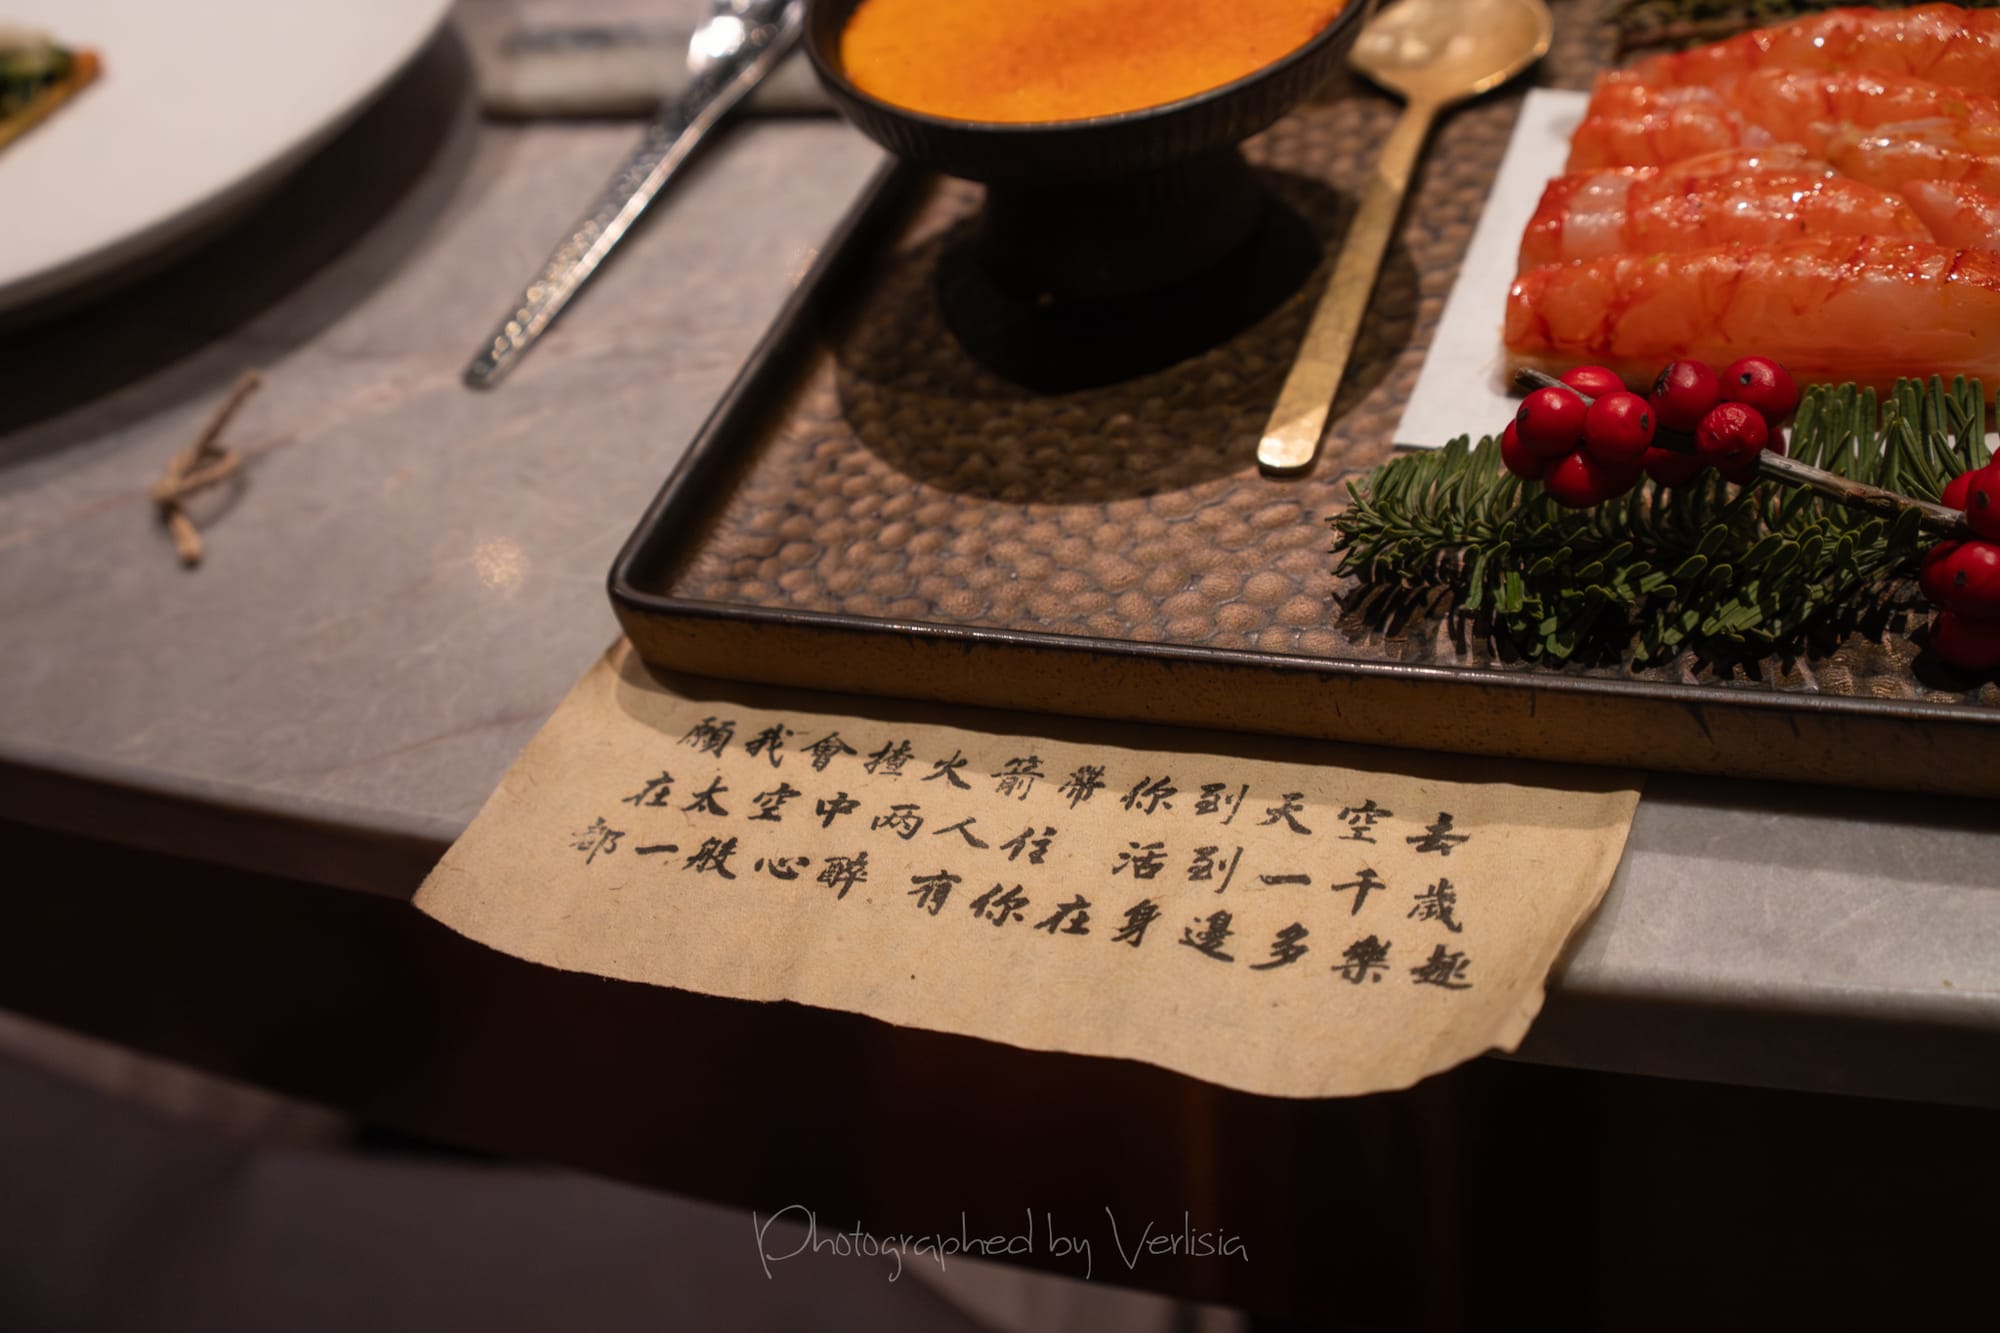 願我會揸火箭帶你到天空去
在太空中两人住 活到一千歲
都一般心醉 有你在身邊多樂趣
Photographed by Verlisia